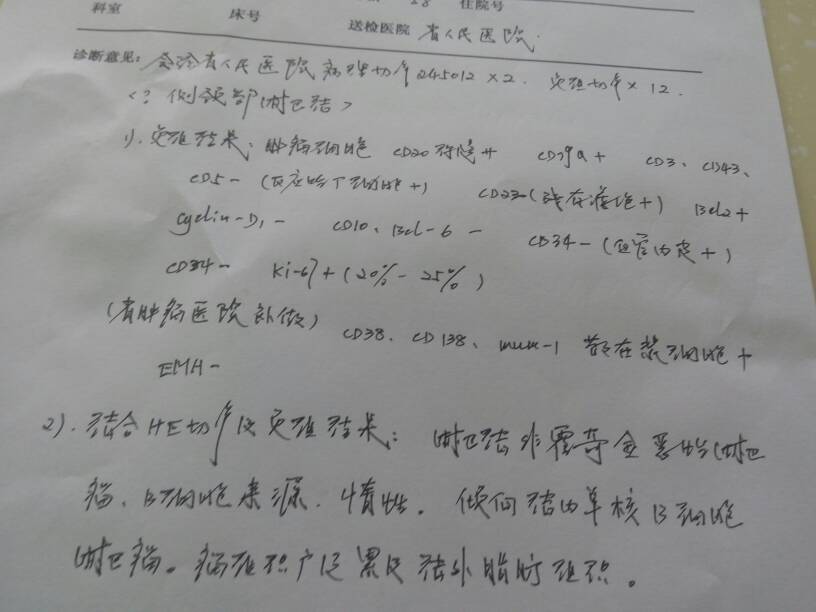 科室 床号 28 住院号
送检医院 省人民医院
诊断意见: 会诊省人民医院病理切片245012×2. 免组切片×12.
<?侧颈部淋巴结>
1). 免组结果: 肿瘤细胞 CD20弥漫+ CD79a+ CD3、CD43、
CD5- (反应性T细胞+) CD23-(残存滤泡+) Bcl2+
Cyclin-D1- CD10、Bcl-6 - CD34-(血管内皮+)
CD34- Ki-67+(20%-25%)
(省肿瘤医院补做) CD38、CD138、mum-1 散在浆细胞+
EMA-
2). 结合HE切片及免组结果: 淋巴结非霍奇金恶性淋巴
瘤、B细胞来源. 惰性。 倾向结内单核B细胞
淋巴瘤。病组织广泛累及结外脂肪组织。